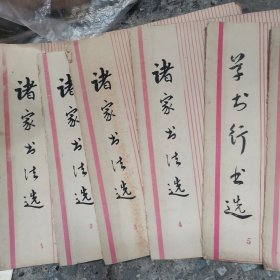 诸家书法选
1
诸家书法选
2
诸家书法选
3
诸家书法选
4
草书行书选
5